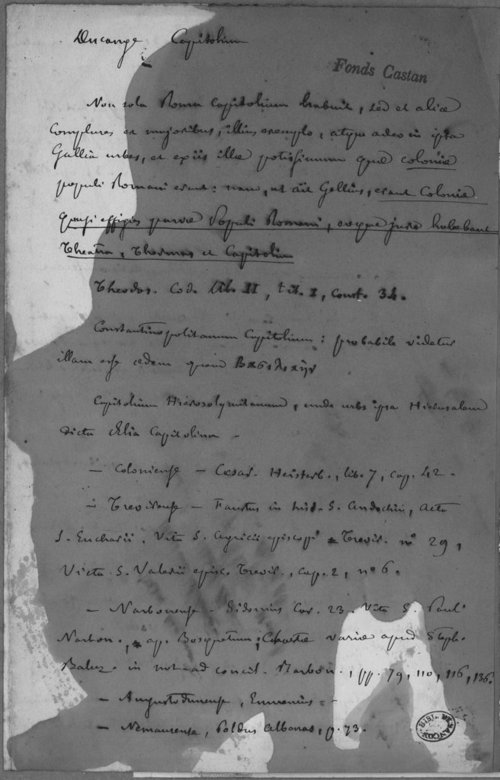 Ducange Capitolium
Fonds Castan
Non sola Roma Capitolium habuit, sed et aliæ
Complures et majoribus, illius exemplo, atque adeo in ipsa
Gallia urbes, et ex iis illæ potissimum quæ coloniæ
populi Romani erant: nam, ut ait Gellius, erant Coloniæ
quasi effigies parvæ Populi Romani, eoque jure habebant
Theatra, Thermas et Capitolia
Theodos. Cod. lib. II, tit. I, const. 34.
Constantinopolitanum Capitolium: probabile videtur
illam esse ædem quam
Capitolium Hierosolymitanum, unde urbs ipsa Hierusalem
dicta Ælia Capitolina
— Coloniense — Cæsar. Heisterb., lib. 7, cap. 42.
— Trevirense — Faustus in hist. S. Andochii, Acta
S. Eucharii. Vita S. Agricii episcopi Trevir. nº 29,
Vita S. Valerii episc. Trevir., cap. 2, nº 6.
— Narbonense — Sidonius Car. 23. Vita S. Pauli
Narbon., ap. Bosquetum, Chartæ variæ apud Steph.
Baluz. in not. ad concil. Narbon., pp. 79, 110, 116, 136.
— Augustodunense, Eumenius
— Nemausense, Poldus Albenas, p. 73.